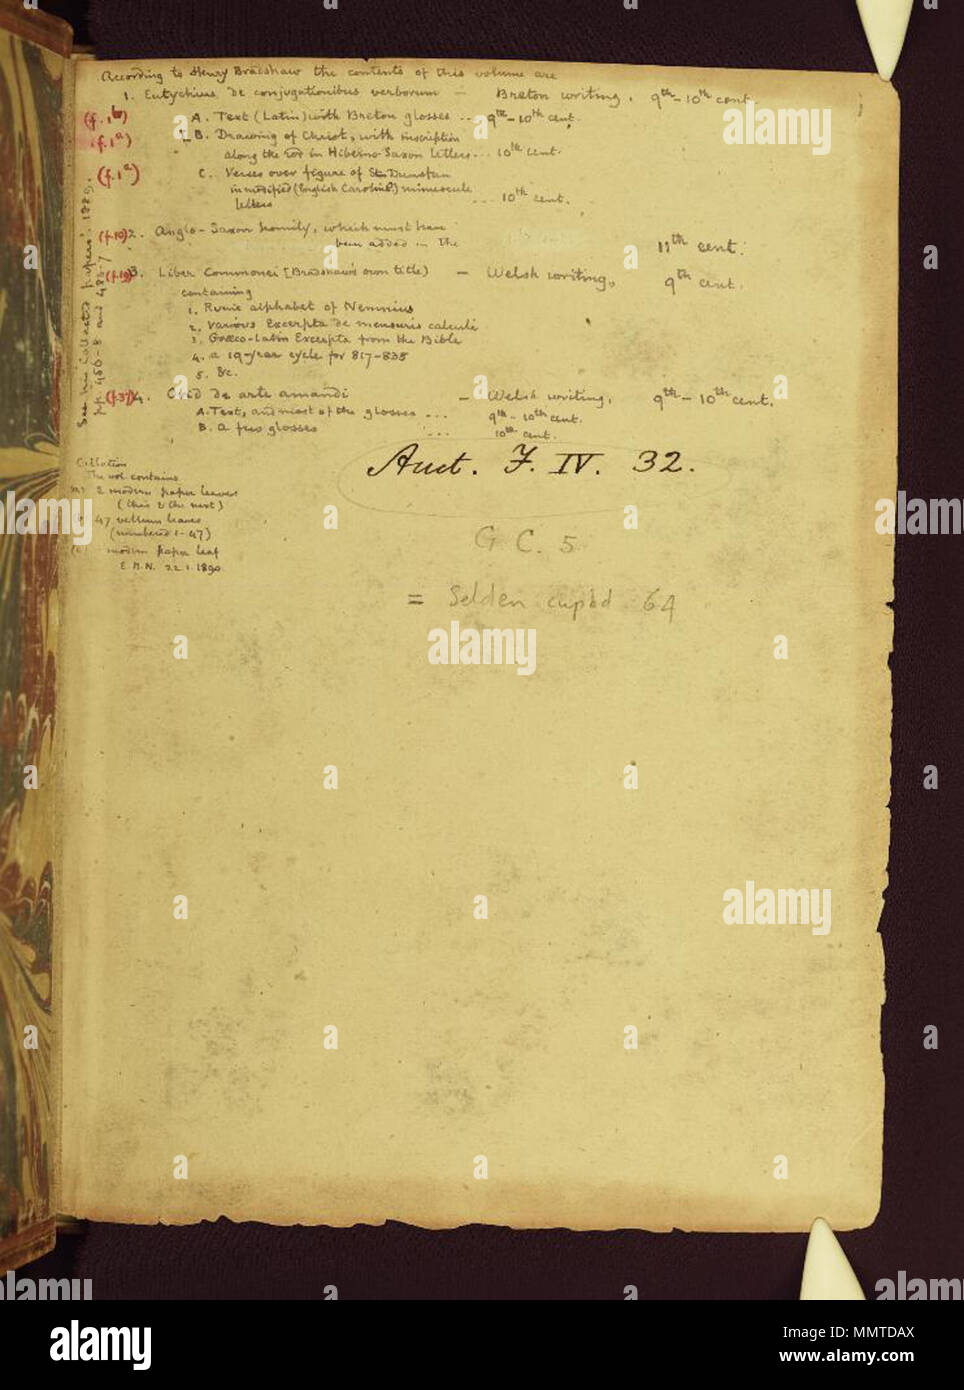 According to Henry Bradshaw the contents of this volume are
1. Eutychius de conjugationibus verborum – Breton writing, 9th–10th cent.
(f. 1b) A. Text (Latin) with Breton glosses ... 9th–10th cent.
(f. 1a) B. Drawing of Christ, with inscription
along the rod in Hiberno-Saxon letters ... 10th cent.
(f. 1a) C. Verses over figure of St. Dunstan
in modified (English Caroline?) minuscule
letters ... 10th cent.
(f. 10) 2. Anglo-Saxon homily, which must have
been added in the 11th cent:
(f. 19) 3. Liber Commonei [Bradshaw's own title) – Welsh writing, 9th cent.
containing
1. Runic alphabet of Nemnius
2. Various Excerpta de mensuris calculi
3. Græco-Latin Excerpta from the Bible
4. a 19-year cycle for 817–835
5. &c.
(f. 37) 4. Ovid de arte amandi – Welsh writing, 9th–10th cent.
A. Text, and most of the glosses ... 9th–10th cent.
B. a few glosses ... 10th cent.
See his 'Collected papers' 1889, pp. 456-8 and 483-7
Auct. F. IV. 32.
Collation
The vol. contains
2 modern paper leaves
(this & the next)
47 vellum leaves
(numbered 1–47)
modern paper leaf
E.W.N. 22.1.1890
G C. 5
= Selden cupbd 64
alamy
alamy
alamy
alamy
alamy
alamy
alamy
alamy
Image ID: MMTDAX
www.alamy.com